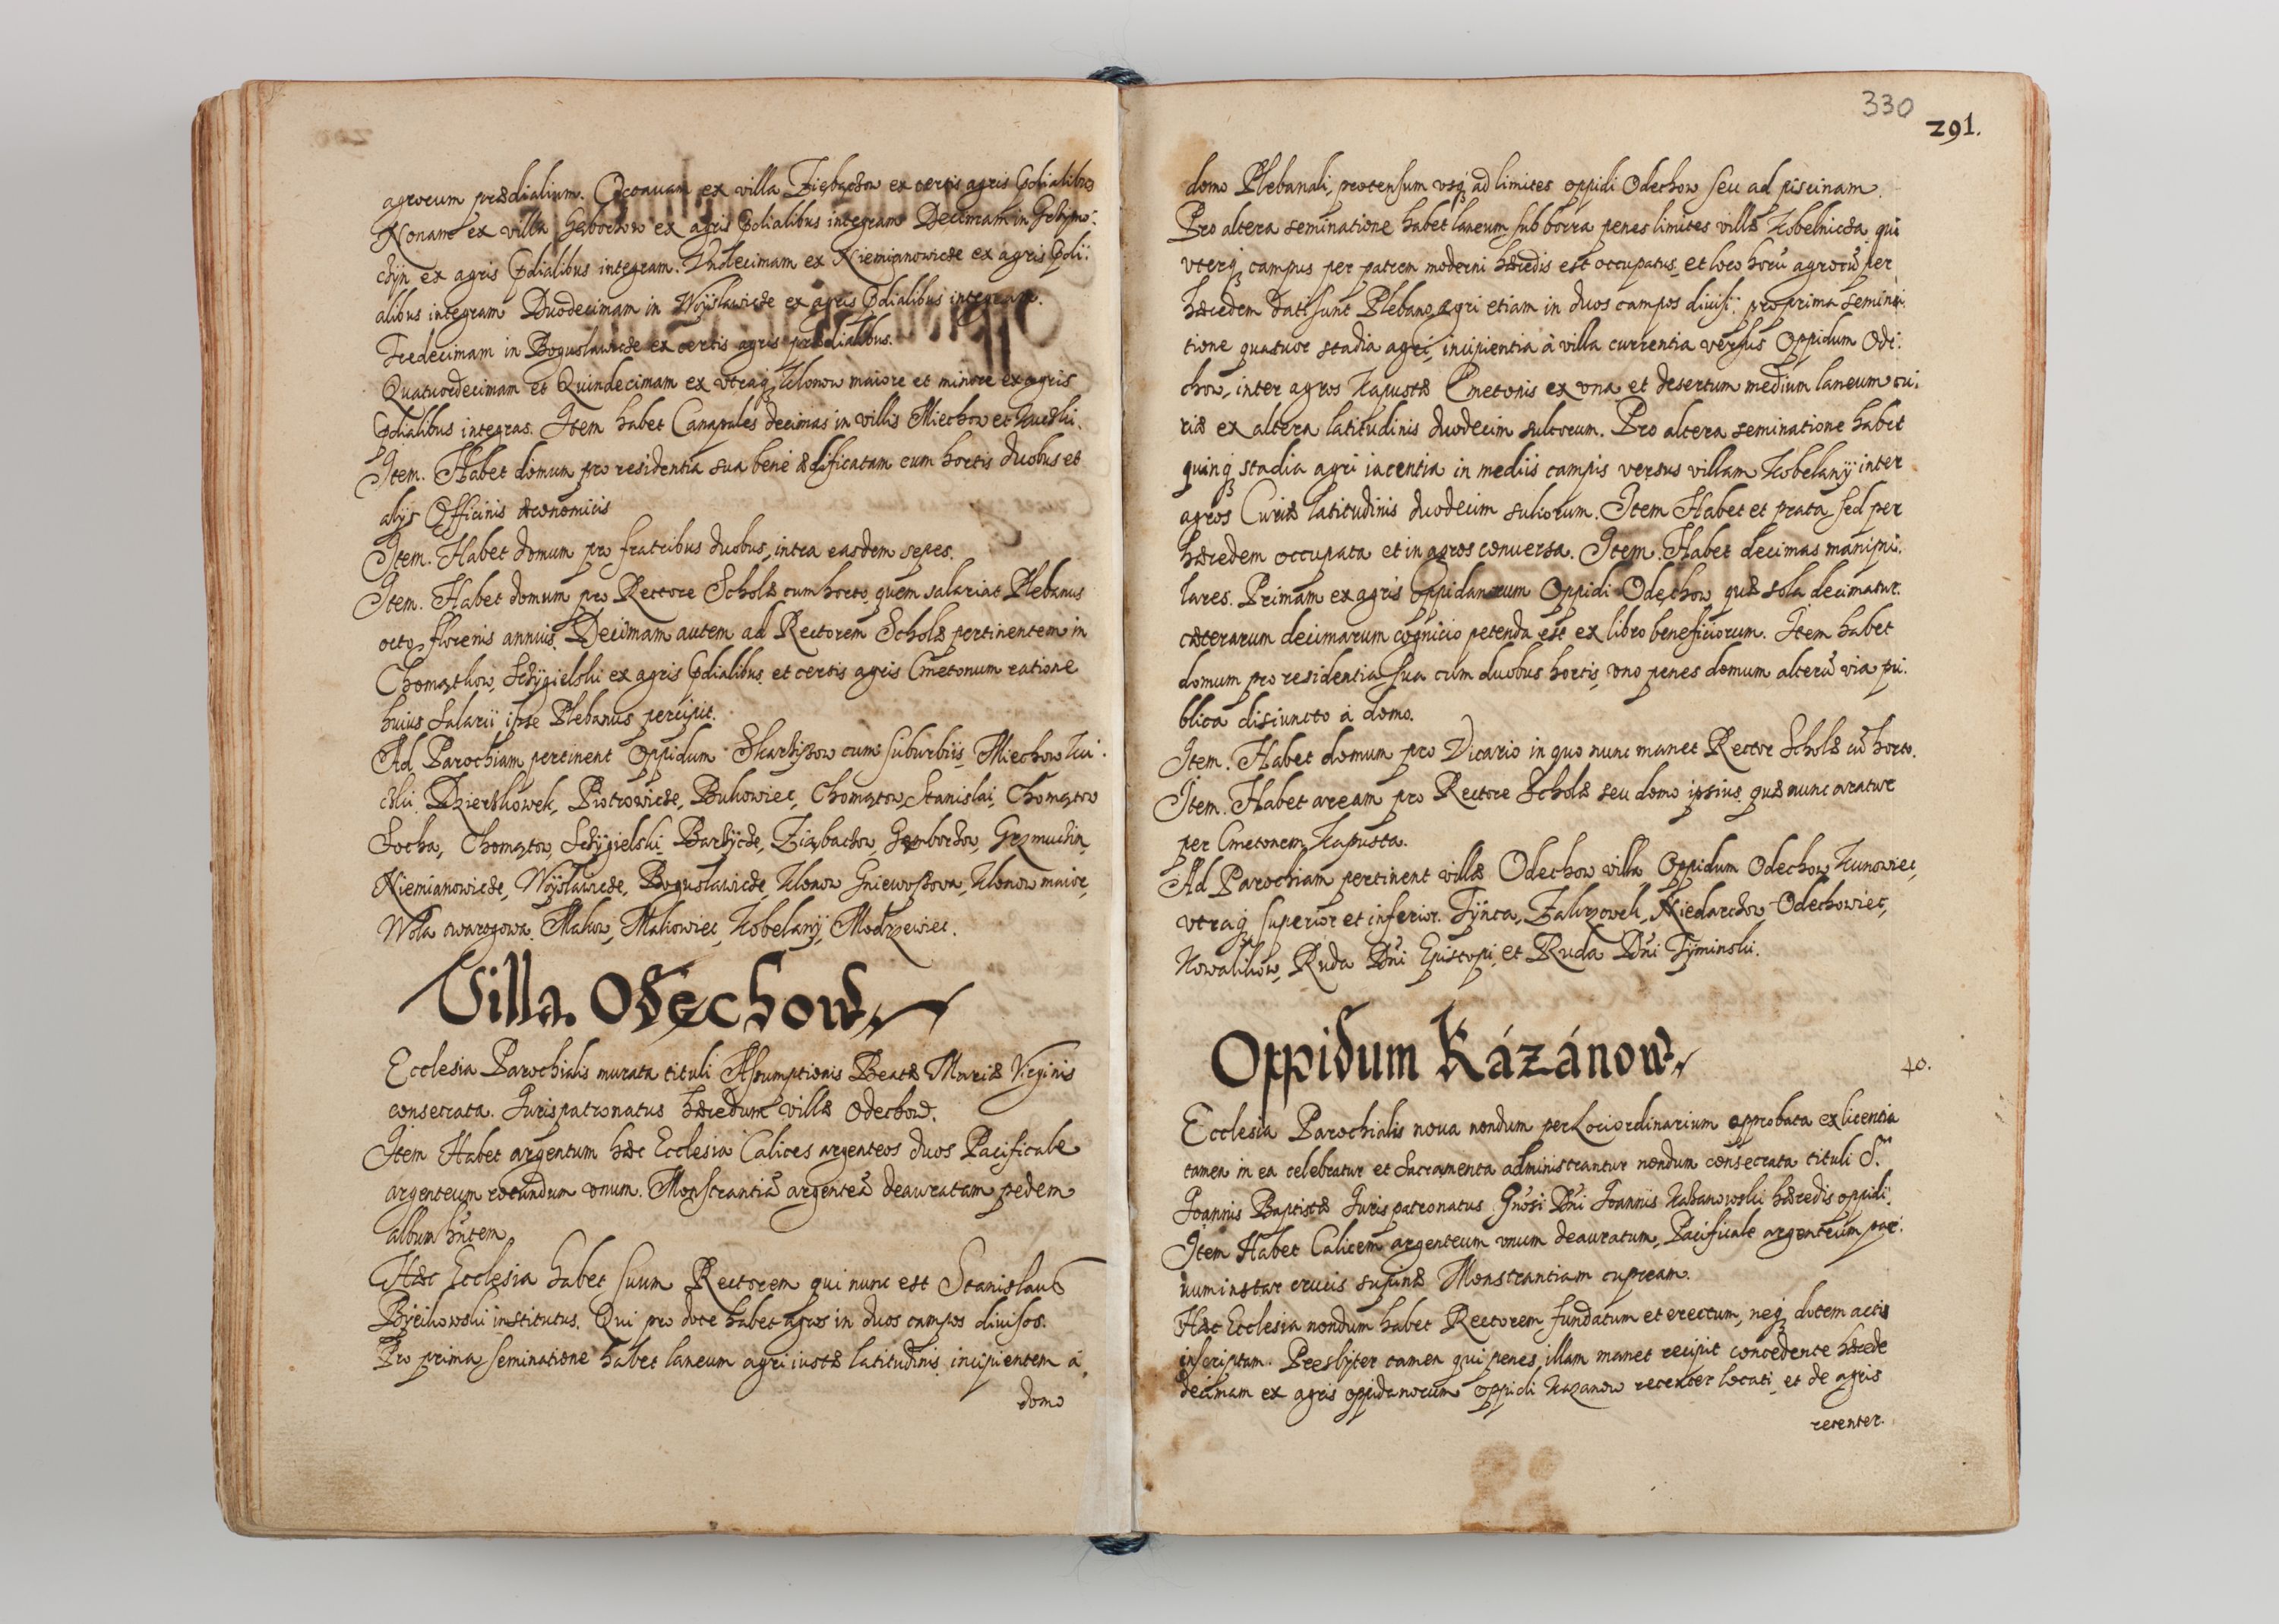 agrorum prædialium. Octauam ex villa Ziębachow ex certis agris pdialibus
Nonam ex villa Gęborchow ex agris pdialibus integram Decimam in
chÿn ex agris pdialibus integram. Vndecimam ex Niemianowicze ex agris pdi:
alibus integram Duodecimam in Woÿslawicze ex agris pdialibus integram.
Tredecimam in Boguslawicze ex certis agris prædialibus.
Quatuordecimam et Quindecimam ex vtraqꝫ Klonow maiore et minore ex agris
pdialibus integras. Item habet Canapales decimas in villis Miechow et
Item. Habet domum pro residentia sua bene ædificatam cum hortis duobus et
alijs Officinis œconomicis
Item. Habet domum pro fratribus duobus, intra easdem sepes.
Item. Habet domum pro Rectore Scholæ cum horto, quem salariat Plebanus
octo florenis annuis. Decimam autem ad Rectorem Scholæ pertinentem in
Chomątkow, Sczÿgielski ex agris pdialibus et certis agris Cmetonum ratione
huius Salarii ipse Plebanus percipit.
Ad Parochiam pertinent Oppidum Skarbÿszow cum suburbiis Miechow Ku:
czki Dzierzkowek, Piotrowicze, Bukowiec, Chomątow Stanislai, Chomątow
Socha, Chomątow, Sczÿgielski Barbÿcze, Ziąbachow, Gęborchow, Grzmuchin,
Niemianowicze, Woÿslawicze, Boguslawicze, Klonow Gniewoszowa, Klonow maior,
Wola twarogowa. Makow, Makowiec, Kobelanÿ, Modrzewiec.
Villa Odechow
Ecclesia Parochialis murata tituli Assumptionis Beatæ Mariæ Virginis
consecrata. Juris patronatus hæredum villæ Odechow.
Item Habet argentum hæc Ecclesia Calices argenteos duos Pacificale
argenteum rotundum vnum. Monstrantiā argenteā deauratam pedem
album hn̄tem
Hæc Ecclesia habet suum Rectorem qui nunc est Stanislaus
institutus. Qui pro dote habet agros in duos campos diuisos.
Pro prima seminatione habet laneum agri iustæ latitudinis incipientem à
domo
330
291.
domo Plebanali, protensum vsqꝫ ad limites oppidi Odechow seu ad piscinam.
Pro altera seminatione habet laneum sub borra penes limites villæ Kobelnicza qui
vterqꝫ campus per patrem moderni hæredis est occupatus, et loco horū agrorū per
hæredem dati sunt Plebano agri etiam in duos campos diuisi: pro prima semina:
tione quatuor stadia agri, incipientia à villa currentia versus Oppidum Ode:
chow, inter agros Kapustæ Cmetonis ex vna et desertum medium laneum cu:
riæ ex altera latitudinis duodecim sulcorum. Pro altera seminatione habet
quinqꝫ stadia agri iacentia in mediis campis versus villam Kobelanÿ inter
agros Curiæ latitudinis duodecim sulcorum. Item Habet et prata sed per
hæredem occupata et in agros conuersa. Item. Habet decimas manipu:
lares. Primam ex agris Oppidanorum Oppidi Odechow quæ sola decimatur.
cæterarum decimarum cognicio petenda est ex libro beneficiorum. Item habet
domum pro residentia sua cum duobus hortis, vno penes domum alterū via pu:
blica disiuncto à domo.
Item. Habet domum pro Vicario in quo nunc manet Rector Scholæ cū horto.
Item. Habet aream pro Rectore Scholæ seu domo ipsius, quæ nunc aratur
per Cmetonem Kapusta.
Ad Parochiam pertinent villæ Odechow villa Oppidum Odechow Kunowiec,
vtraqꝫ superior et inferior. Tÿnca, Zalizowek, Niedarchow Odechowiec,
Kowalikow, Ruda Dn̄i Episcopi, et Ruda Dn̄i Tÿminski.
Oppidum Kázánow
40.
Ecclesia Parochialis noua nondum per Loci ordinarium approbata ex licentia
tamen in ea celebratur et Sacramenta administrantur nondum consecrata tituli S.
Joannis Baptistæ Juris patronatus Gn̄osi Dn̄i Joannis Kazanowski hæredis oppidi.
Item Habet Calicem argenteum vnum deauratum, Pacificale argenteum par:
uum instar crucis Monstrantiam cupream.
Hæc Ecclesia nondum habet Rectorem fundatum et erectum, neqꝫ dotem actis
inscriptam. Presbÿter tamen qui penes illam manet recipit concedente hærede
decimam ex agris oppidanorum oppidi Kazanow recenter locati, et de agris
recenter.